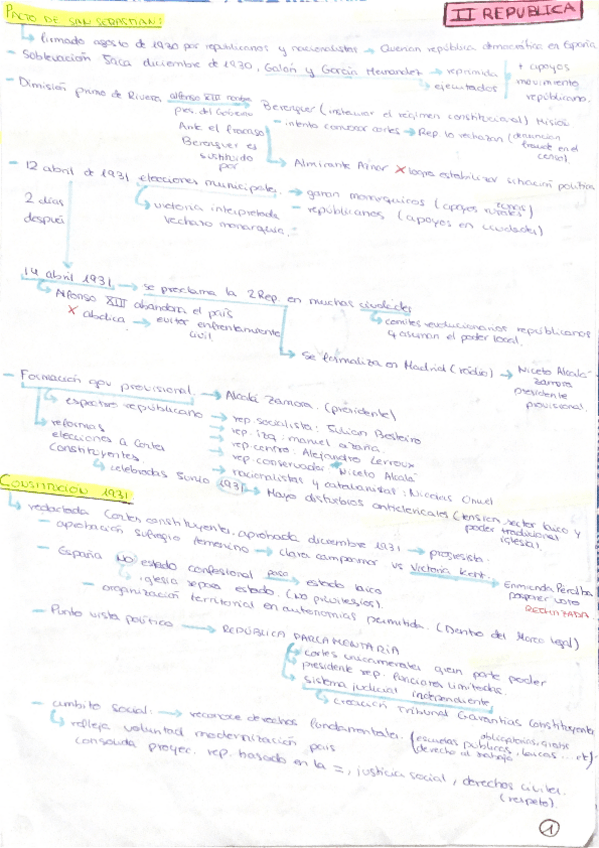 PACTO DE SAN SEBASTIÁN:
II REPUBLICA
firmado agosto de 1930 por republicanos y nacionalistas → Querían república democrática en España
- Sublevación Jaca diciembre de 1930, Galán y García Hernández → reprimida
ejecutados
+ apoyos
movimiento
republicano.
- Dimisión primo de Rivera, alfonso XIII nombra
pres. del Gobierno
Berenguer (instaurar el régimen constitucional) Misión
- intento convocar cortes → Rep. lo rechazan (denuncian
fraude en el
censo).
Ante el fracaso
Berenguer es
sustituido
por
Almirante Aznar X logra estabilizar situación política
- 12 abril de 1931 elecciones municipales. → ganan monárquicos (apoyos rurales)
zonas
- republicanos (apoyos en ciudades)
victoria interpretada
rechazo monarquía.
2 días
después
14 abril 1931 → se proclama la 2 Rep. en muchas ciudades
comités revolucionarios republicanos
asumen el poder local.
Alfonso XIII abandona el país
X abdica → evitar enfrentamiento
civil
se formaliza en Madrid (radio) → Niceto Alcalá-
Zamora
presidente
provisional.
- Formación gov provisional → Alcalá Zamora. (presidente)
espectro republicano → rep. socialista: Julian Besteiro
rep. izq: manuel azaña.
rep. centro: Alejandro Lerroux
rep. conservador → Niceto Alcalá
nacionalistas y catalanistas: Nicolas
reformas
elecciones a Cortes
Constituyentes
celebradas Junio 1931 → Mayo disturbios anticlericales (tensión sector laico y
poder tradicional
iglesia).
CONSTITUCION 1931
redactada Cortes constituyentes, aprobada diciembre 1931 → progresista
- aprobación sufragio femenino → clara campoamor vs Victoria Kent.
Enmienda
posponer voto
RECHAZADA
- España NO estado confesional pasa estado laico
iglesia separa estado. (No privilegios).
- organización territorial en autonomías permitida. (Dentro del Marco legal)
- Punto vista político → REPÚBLICA PARLAMENTARIA
cortes unicamerales gran parte poder
presidente rep. funciones limitadas.
sistema judicial independiente
creación Tribunal Garantías Constituyentes
- ambito social: → reconoce derechos fundamentales. (escuelas públicas, laicas ... etc)
obligatorias, gratis
derecho al trabajo
refleja voluntad modernización país
consolida proyec. rep. basado en la =, justicia social, derechos civiles.
(respeto).
1